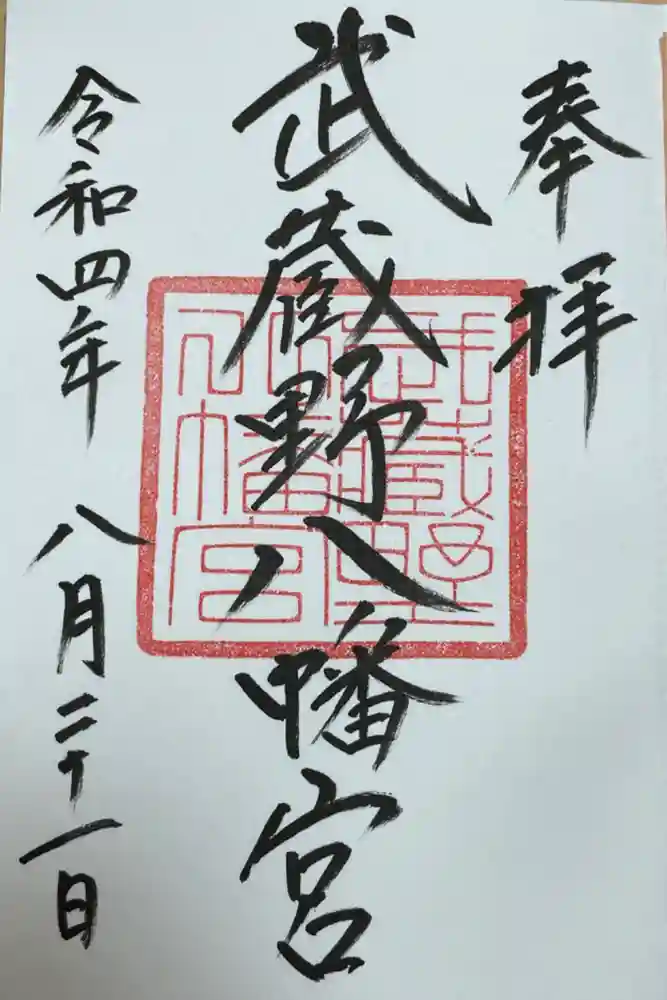 奉拝
武蔵野八幡宮
武蔵野八幡宮
令和四年 八月二十一日